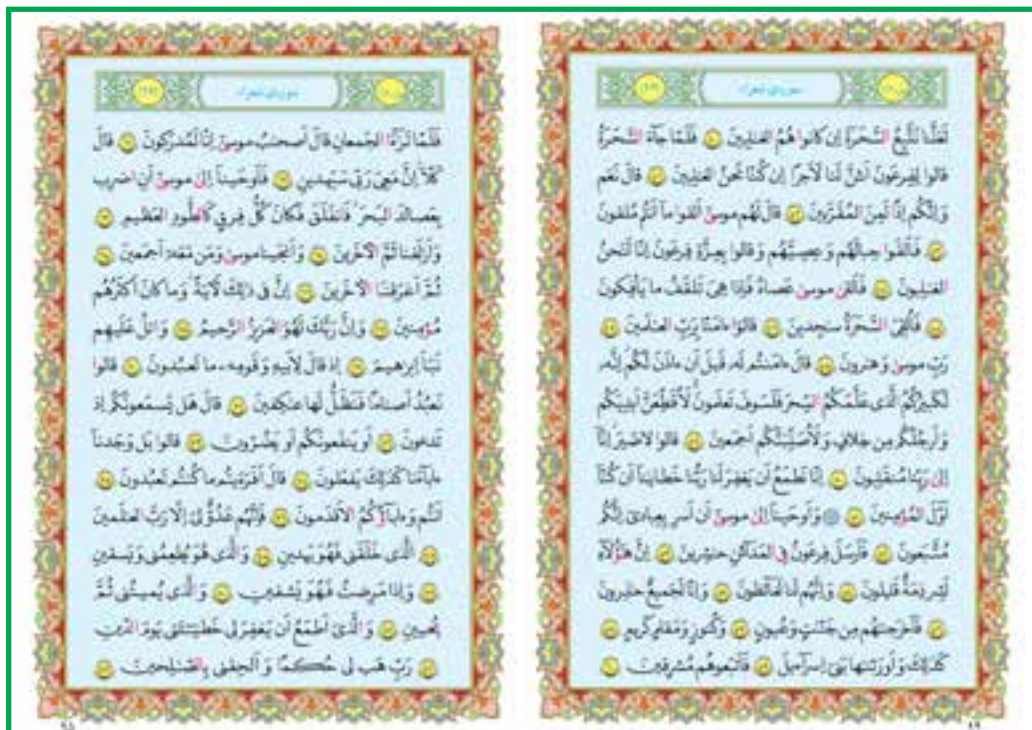 لَعَلَّنا نَتَّبِعُ السَّحَرَةَ إِن كانوا هُمُ الغـٰلِبينَ فَلَمّا جآءَ السَّحَرَةُ
قالوا لِفِرعَونَ أَئِنَّ لَنا لَأَجرًا إِن كُنّا نَحنُ الغـٰلِبينَ قالَ نَعَم
وَإِنَّكُم إِذًا لَمِنَ المُقَرَّبينَ قالَ لَهُم موسىٰ أَلقوا مآ أَنتُم مُلقونَ
فَأَلقَوا حِبالَهُم وَعِصِيَّهُم وَقالوا بِعِزَّةِ فِرعَونَ إِنّا لَنَحنُ
الغـٰلِبونَ فَأَلقىٰ موسىٰ عَصاهُ فَإِذا هِىَ تَلقَفُ ما يَأفِكونَ
فَأُلقِىَ السَّحَرَةُ سـٰجِدينَ قالوا ءامَنّا بِرَبِّ العـٰلَمينَ
رَبِّ موسىٰ وَهـٰرونَ قالَ ءامَنتُم لَهۥ قَبلَ أَن ءاذَنَ لَكُم إِنَّهۥ
لَكَبيرُكُمُ الَّذى عَلَّمَكُمُ السِّحرَ فَلَسَوفَ تَعلَمونَ لَأُقَطِّعَنَّ أَيدِيَكُم
وَأَرجُلَكُم مِن خِلافٍ وَلَأُصَلِّبَنَّكُم أَجمَعينَ قالوا لا ضَيرَ إِنّآ
إِلىٰ رَبِّنا مُنقَلِبونَ إِنّا نَطمَعُ أَن يَغفِرَ لَنا رَبُّنا خَطـٰيـٰنآ أَن كُنّآ
أَوَّلَ المُؤمِنينَ وَأَوحَينآ إِلىٰ موسىٰ أَن أَسرِ بِعِبادى إِنَّكُم
مُتَّبَعونَ فَأَرسَلَ فِرعَونُ فِى المَدآئِنِ حـٰشِرينَ إِنَّ هـٰؤُلآءِ
لَشِرذِمَةٌ قَليلونَ وَإِنَّهُم لَنا لَغآئِظونَ وَإِنّا لَجَميعٌ حـٰذِرونَ
فَأَخرَجنـٰهُم مِن جَنّـٰتٍ وَعُيونٍ وَكُنوزٍ وَمَقامٍ كَريمٍ
كَذٰلِكَ وَأَورَثنـٰها بَنى إِسرآءيلَ فَأَتبَعوهُم مُشرِقينَ
فَلَمّا تَرٰٓءَا الجَمعانِ قالَ أَصحـٰبُ موسىٰ إِنّا لَمُدرَكونَ قالَ
كَلّآ إِنَّ مَعِىَ رَبّى سَيَهدينِ فَأَوحَينآ إِلىٰ موسىٰ أَنِ اضرِب
بِعَصاكَ البَحرَ فَانفَلَقَ فَكانَ كُلُّ فِرقٍ كَالطَّودِ العَظيمِ
وَأَزلَفنا ثَمَّ الأَخَرينَ وَأَنجَينا موسىٰ وَمَن مَعَهۥ أَجمَعينَ
ثُمَّ أَغرَقنَا الأَخَرينَ إِنَّ فى ذٰلِكَ لَأَيَةً وَما كانَ أَكثَرُهُم
مُؤمِنينَ وَإِنَّ رَبَّكَ لَهُوَ العَزيزُ الرَّحيمُ وَاتلُ عَلَيهِم
نَبَأَ إِبرٰهيمَ إِذ قالَ لِأَبيهِ وَقَومِهۦ ما تَعبُدونَ قالوا
نَعبُدُ أَصنامًا فَنَظَلُّ لَها عـٰكِفينَ قالَ هَل يَسمَعونَكُم إِذ
تَدعونَ أَو يَنفَعونَكُم أَو يَضُرّونَ قالوا بَل وَجَدنآ
ءابآءَنا كَذٰلِكَ يَفعَلونَ قالَ أَفَرَءَيتُم ما كُنتُم تَعبُدونَ
أَنتُم وَءابآؤُكُمُ الأَقدَمونَ فَإِنَّهُم عَدُوٌّ لى إِلّا رَبَّ العـٰلَمينَ
الَّذى خَلَقَنى فَهُوَ يَهدينِ وَالَّذى هُوَ يُطعِمُنى وَيَسقينِ
وَإِذا مَرِضتُ فَهُوَ يَشفينِ وَالَّذى يُميتُنى ثُمَّ
يُحيينِ وَالَّذى أَطمَعُ أَن يَغفِرَ لى خَطيـَٔتى يَومَ الدّينِ
رَبِّ هَب لى حُكمًا وَأَلحِقنى بِالصّـٰلِحينَ